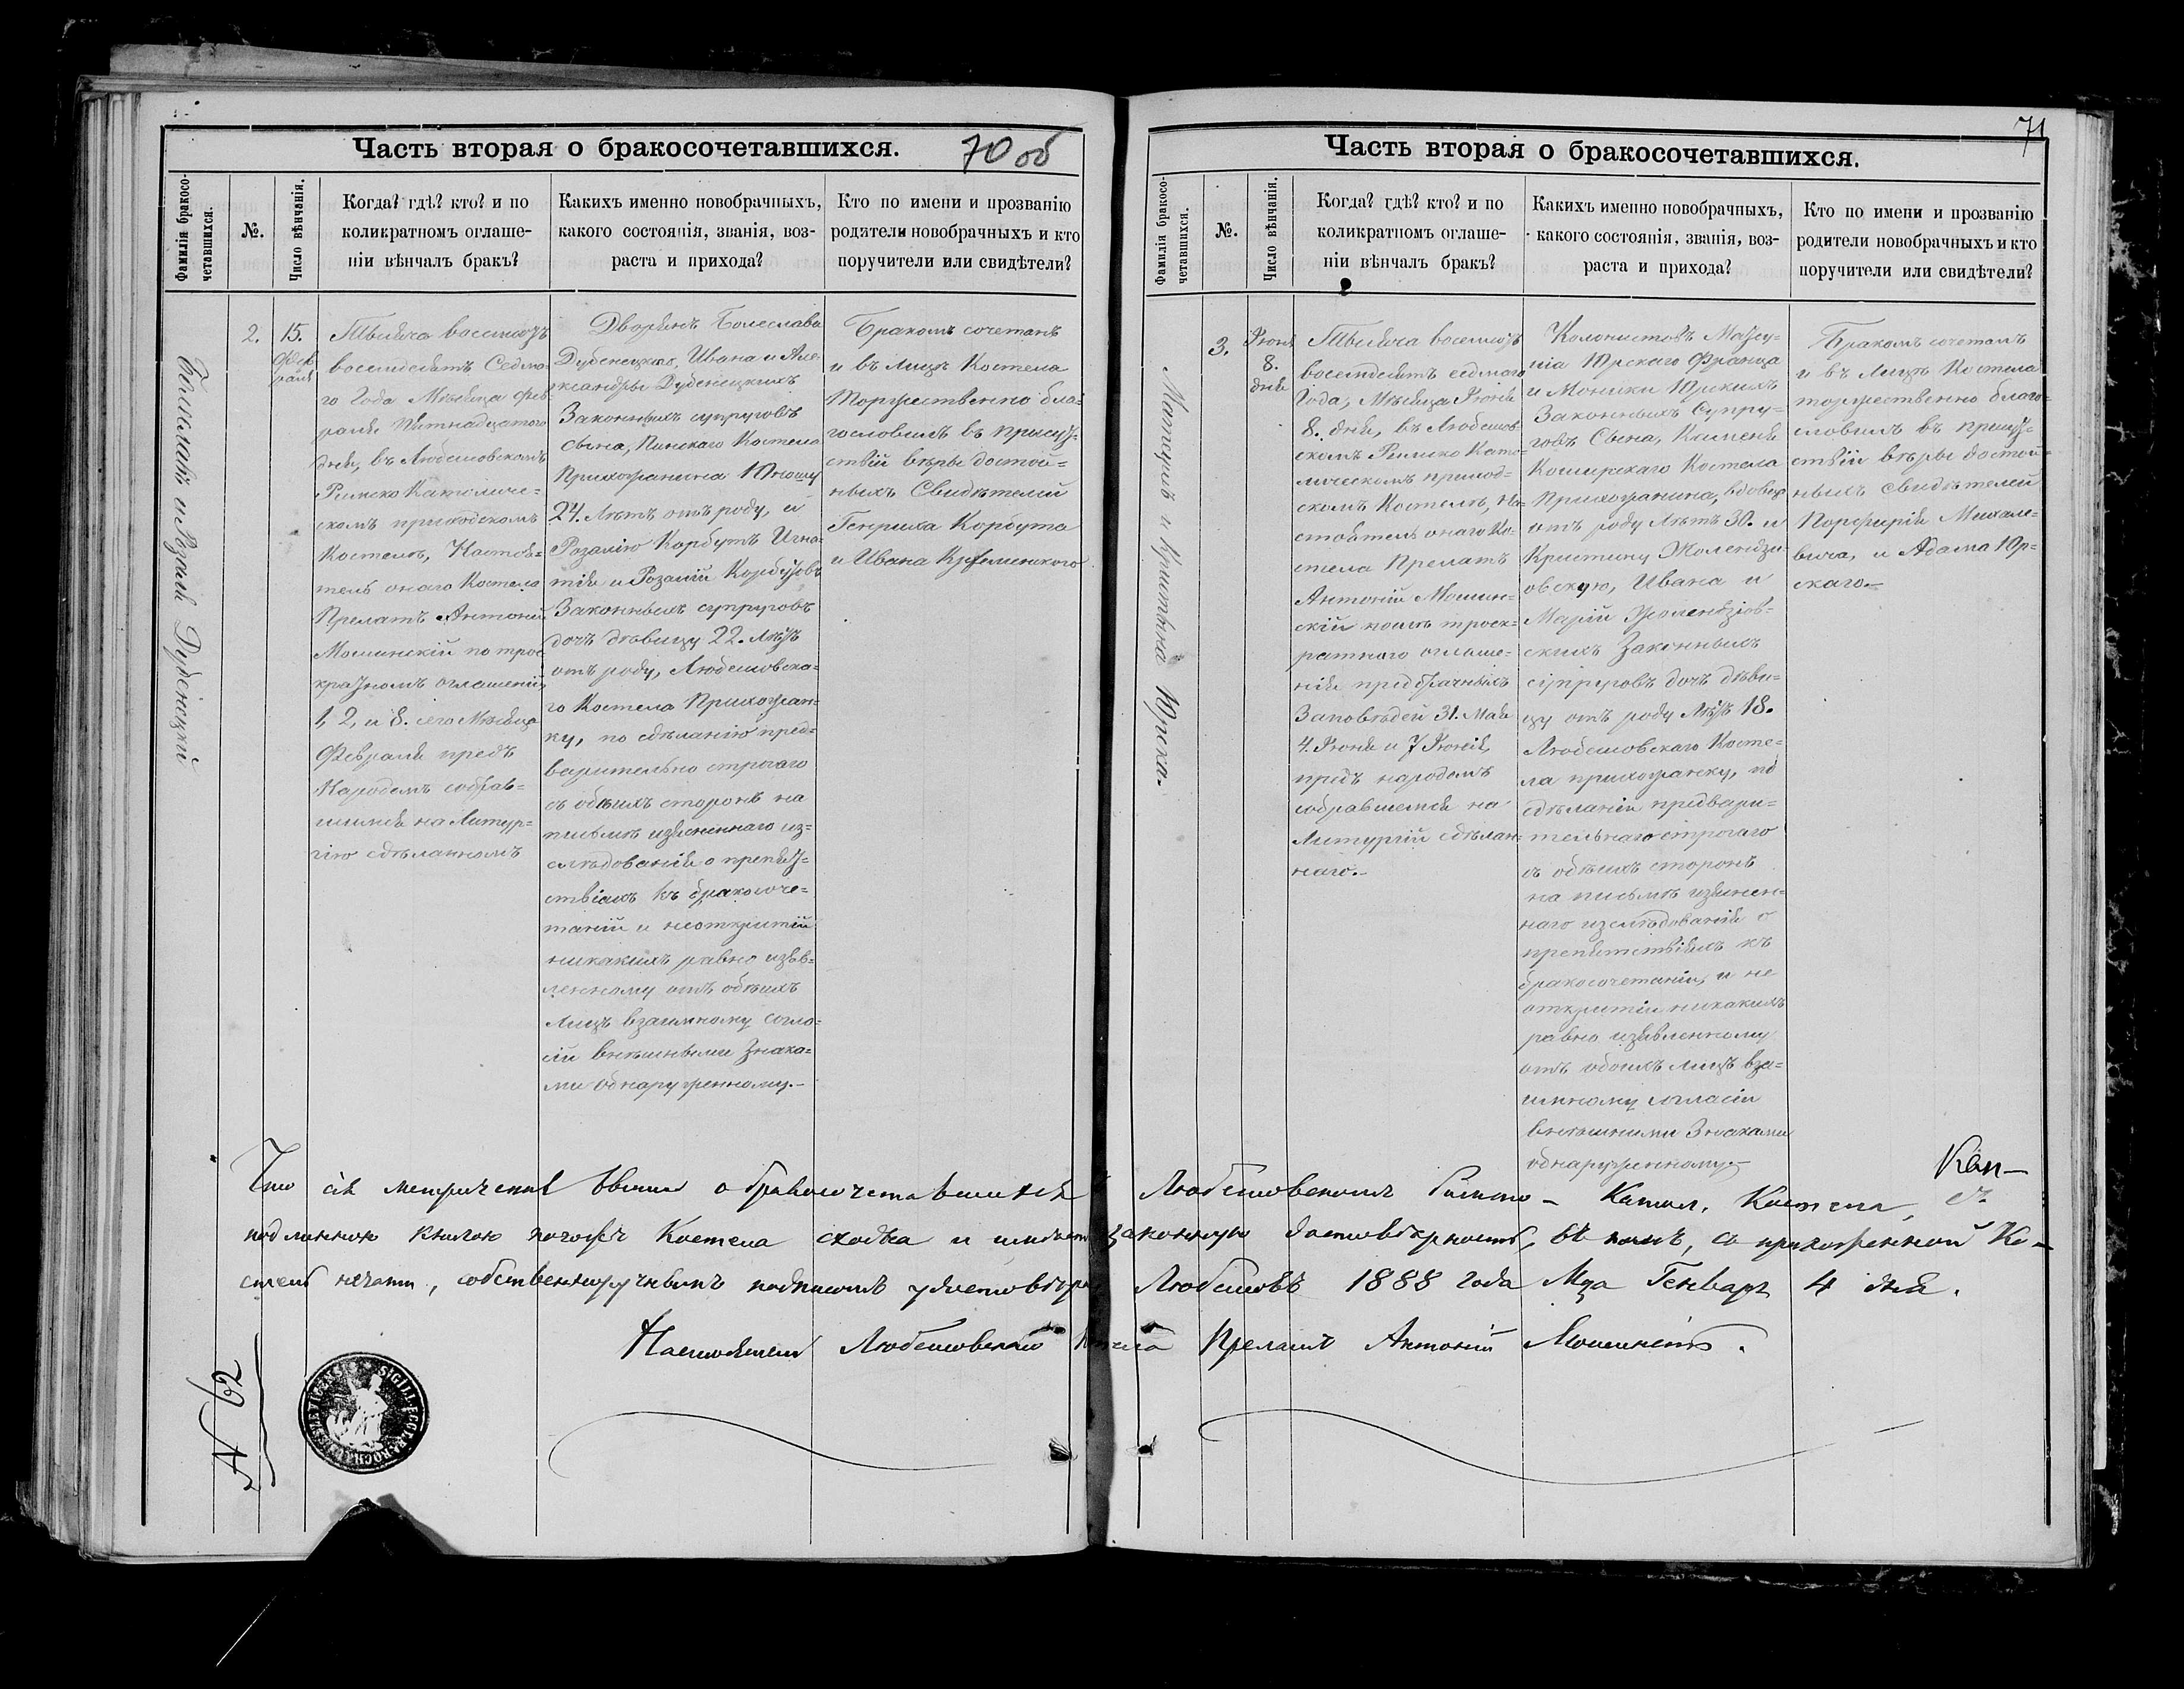 Часть вторая о бракосочетавшихся.
70 об
Фамилія бракосо-
четавшихся.
№.
Число вѣнчанія.
Когда? гдѣ? кто? и по
коликратномъ оглаше-
ніи вѣнчалъ бракъ?
Какихъ именно новобрачныхъ,
какого состоянія, званія, воз-
раста и прихода?
Кто по имени и прозванію
родители новобрачныхъ и кто
поручители или свидѣтели?
Болеславъ и Розалія Дубенецкій
2.
15.
Фев
раля
Тысяча восемьсотъ
восемдесятъ Седма-
го Года Мѣсяца Фев-
раля Пятнадцатого
дня, въ Любешовскомъ
Римско Католиче=
скомъ приходскомъ
Костелѣ, Настоя=
тель онаго Костела
Прелатъ Антоній
Мошинскій по трое
кратномъ оглашеніи
1, 2, и 8. сего Мѣсяца
Февраля предъ
Народомъ собрав=
шимся на Литур=
гію сдѣланномъ
Дворянъ Болеслава
Дубенецкаго, Ивана и Але-
ксандры Дубенецкихъ
Законныхъ супруговъ
Сына, Пинскаго Костела
Прихожанина Юношу
24. Лѣтъ отъ роду, и
Розалію Корбутъ Игна-
тія и Розаліи Корбутовъ
Законныхъ супруговъ
дочь дѣвицу 22. лѣтъ
отъ роду, Любешовска-
го Костела Прихожан=
ку, по сдѣланію пред=
варительно строгаго
съ обѣихъ сторонъ на
письмѣ изъясненнаго из=
слѣдованія о препят=
ствіяхъ къ бракосоче=
танію и неоткрытіи
никакихъ равно изъяв=
ленному отъ обѣихъ
лицъ взаимному согла=
сіи внѣшными Знака=
ми обнаруженному.-
Бракомъ сочеталъ
и въ Лицѣ Костела
Торжественно бла=
гословилъ въ присут=
ствіи вѣры достой=
ныхъ Свидѣтелей
Генриха Корбута
и Ивана Кржеминского
Часть вторая о бракосочетавшихся.
71
Фамилія бракосо-
четавшихся.
№.
Число вѣнчанія.
Когда? гдѣ? кто? и по
коликратномъ оглаше-
ніи вѣнчалъ бракъ?
Какихъ именно новобрачныхъ,
какого состоянія, званія, воз-
раста и прихода?
Кто по имени и прозванію
родители новобрачныхъ и кто
поручители или свидѣтели?
и Кристына Юрска.
3.
Іюня
8.
дня
Тысяча восемьсотъ
восемдесятъ седмаго
Года, Мѣсяца Іюня
8. дня, въ Любешов-
скомъ Римско Като=
лическомъ приход=
скомъ Костелѣ, На-
стоятель онаго Ко-
стела Прелатъ
Антоній Мошин=
скій послѣ троек=
ратнаго оглаше=
нія предбрачныхъ
Заповѣдей 31. Мая
4. Іюня и 7 Іюня,
предъ народомъ
собравшемся на
Литургіи сдѣлан=
наго.-
Колонистовъ
Юрскаго Франца
и Моники Юрскихъ
Законныхъ Супру-
говъ Сына, Каменя
Коширскаго Костела
Прихожанина, вдовца
отъ роду лѣтъ 30. и
Кристину Жолендзи-
овскую, Ивана и
Маріи Жолендзіов-
скихъ Законныхъ
супруговъ дочь дѣви-
цу отъ роду лѣтъ 18.
Любешовскаго Косте=
ла прихожанку, по
сдѣланіи предвари=
тельнаго строгаго
съ обѣихъ сторонъ
на письмѣ изъяснен=
наго изслѣдованія о
препятствіяхъ къ
бракосочетанію, и не
открытіи никакихъ
равно изъявленному
отъ обоихъ лицъ вза=
имному согласіи
внѣшними Знаками
обнаруженному.-
Бракомъ сочеталъ
и въ Лицѣ Костела
торжественно благо=
словилъ въ присут=
ствіи вѣры достой=
ныхъ свидѣтелей
Порфирія Михале=
вича, и Адама Юр=
скаго.-
Что сія метрическая о бракосочетавшихся Любешовскомъ Римско - Катол. Костела, съ
подлинною книгою того жъ Костела сходна и имѣетъ законную достовѣрность, въ томъ, съ приложенной Ко-
стела печати, собственноручнымъ подписомъ удостовѣряю Любешовъ 1888 года Мца Генваря 4 дня.
Настоятель Любешовскаго Костела Прелатъ Антоній Мошинскій.
N 62